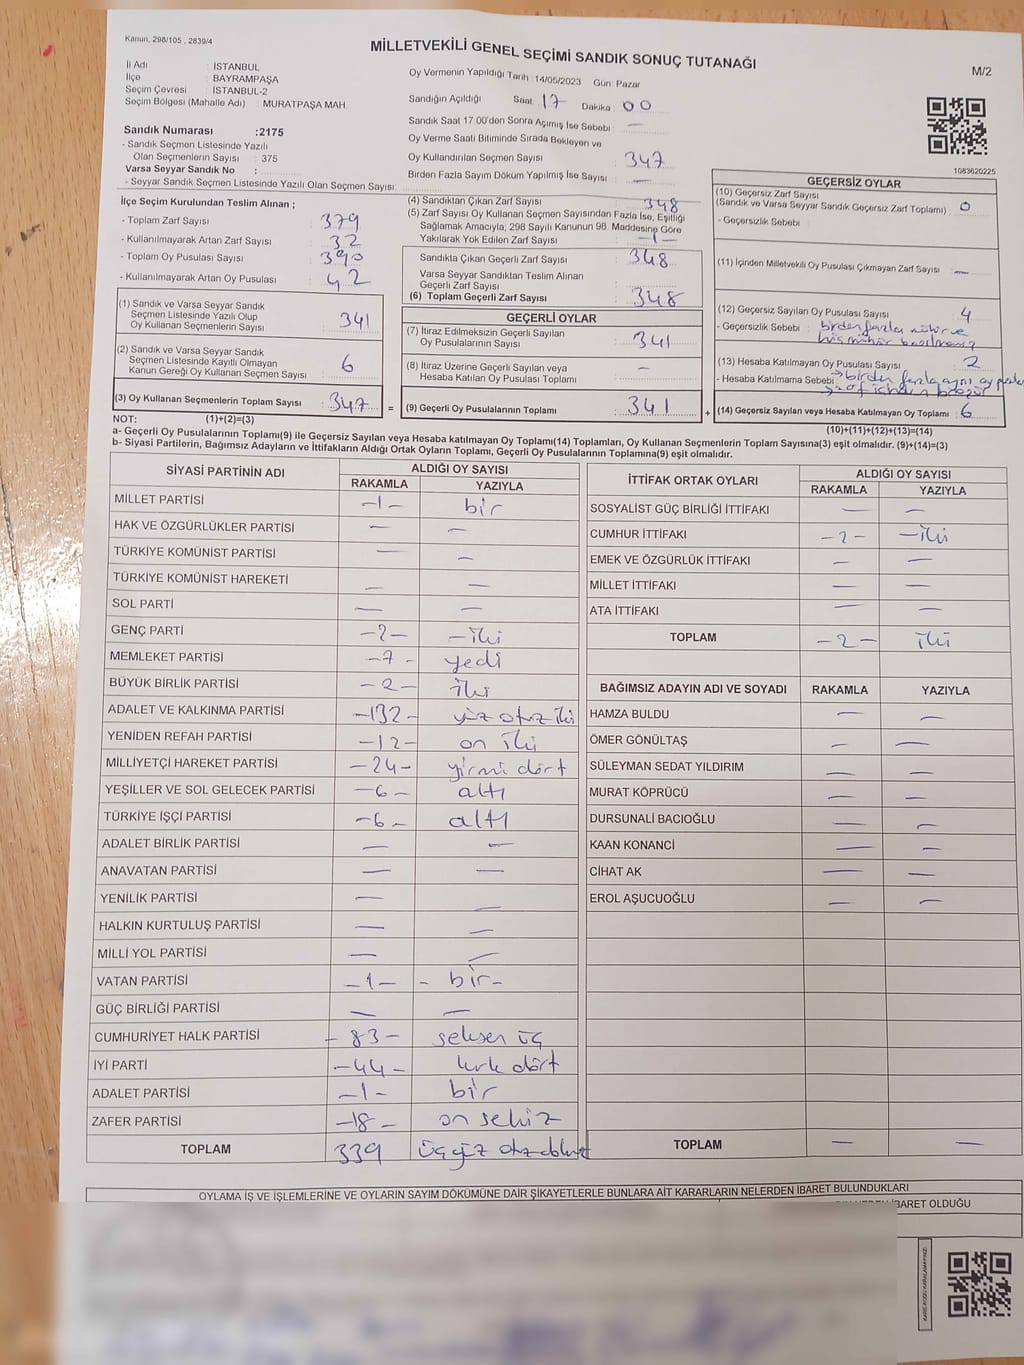 Kanun, 298/105 , 2839/4
MİLLETVEKİLİ GENEL SEÇİMİ SANDIK SONUÇ TUTANAĞI
M/2
İl Adı : İSTANBUL
İlçe : BAYRAMPAŞA
Seçim Çevresi : İSTANBUL-2
Seçim Bölgesi (Mahalle Adı) : MURATPAŞA MAH.
Sandık Numarası :2175
- Sandık Seçmen Listesinde Yazılı
Olan Seçmenlerin Sayısı : 375
Varsa Seyyar Sandık No :
- Seyyar Sandık Seçmen Listesinde Yazılı Olan Seçmen Sayısı:
Oy Vermenin Yapıldığı Tarih : 14/05/2023 Gün: Pazar
Sandığın Açıldığı Saat 17 Dakika : 00
Sandık Saat 17:00'den Sonra Açılmış İse Sebebi : —
Oy Verme Saati Bitiminde Sırada Bekleyen ve
Oy Kullandırılan Seçmen Sayısı : 347
Birden Fazla Sayım Döküm Yapılmış İse Sayısı : —
1083620225
İlçe Seçim Kurulundan Teslim Alınan ;
- Toplam Zarf Sayısı : 379
- Kullanılmayarak Artan Zarf Sayısı : 32
- Toplam Oy Pusulası Sayısı : 390
- Kullanılmayarak Artan Oy Pusulası : 42
(1) Sandık ve Varsa Seyyar Sandık
Seçmen Listesinde Yazılı Olup
Oy Kullanan Seçmenlerin Sayısı : 341
(2) Sandık ve Varsa Seyyar Sandık
Seçmen Listesinde Kayıtlı Olmayan
Kanun Gereği Oy Kullanan Seçmen Sayısı : 6
(3) Oy Kullanan Seçmenlerin Toplam Sayısı : 347 =
(4) Sandıktan Çıkan Zarf Sayısı : 348
(5) Zarf Sayısı Oy Kullanan Seçmen Sayısından Fazla İse, Eşitliği
Sağlamak Amacıyla; 298 Sayılı Kanunun 98. Maddesine Göre
Yakılarak Yok Edilen Zarf Sayısı : -1-
Sandıkta Çıkan Geçerli Zarf Sayısı : 348
Varsa Seyyar Sandıktan Teslim Alınan
Geçerli Zarf Sayısı :
(6) Toplam Geçerli Zarf Sayısı : 348
GEÇERLİ OYLAR
(7) İtiraz Edilmeksizin Geçerli Sayılan
Oy Pusulalarının Sayısı : 341
(8) İtiraz Üzerine Geçerli Sayılan veya
Hesaba Katılan Oy Pusulası Toplamı : —
(9) Geçerli Oy Pusulalarının Toplamı : 341 +
GEÇERSİZ OYLAR
(10) Geçersiz Zarf Sayısı
(Sandık ve Varsa Seyyar Sandık Geçersiz Zarf Toplamı) : 0
- Geçersizlik Sebebi :
(11) İçinden Milletvekili Oy Pusulası Çıkmayan Zarf Sayısı : —
(12) Geçersiz Sayılan Oy Pusulası Sayısı : 4
- Geçersizlik Sebebi : birden fazla mühür ve
hiç mühür basılmamış
(13) Hesaba Katılmayan Oy Pusulası Sayısı : 2
- Hesaba Katılmama Sebebi : → birden fazla aynı oy
(14) Geçersiz Sayılan veya Hesaba Katılmayan Oy Toplamı : 6
NOT: (1)+(2)=(3)
(10)+(11)+(12)+(13)=(14)
a- Geçerli Oy Pusulalarının Toplamı(9) ile Geçersiz Sayılan veya Hesaba katılmayan Oy Toplamı(14) Toplamları, Oy Kullanan Seçmenlerin Toplam Sayısına(3) eşit olmalıdır. (9)+(14)=(3)
b- Siyasi Partilerin, Bağımsız Adayların ve İttifakların Aldığı Ortak Oyların Toplamı, Geçerli Oy Pusulalarının Toplamına(9) eşit olmalıdır.
SİYASİ PARTİNİN ADI ALDIĞI OY SAYISI
RAKAMLA YAZIYLA
MİLLET PARTİSİ -1- bir
HAK VE ÖZGÜRLÜKLER PARTİSİ — —
TÜRKİYE KOMÜNİST PARTİSİ — —
TÜRKİYE KOMÜNİST HAREKETİ — —
SOL PARTİ — —
GENÇ PARTİ -2- -iki
MEMLEKET PARTİSİ -7- yedi
BÜYÜK BİRLİK PARTİSİ -2- iki
ADALET VE KALKINMA PARTİSİ -132- yüz otuz iki
YENİDEN REFAH PARTİSİ -12- on iki
MİLLİYETÇİ HAREKET PARTİSİ -24- yirmi dört
YEŞİLLER VE SOL GELECEK PARTİSİ -6- altı
TÜRKİYE İŞÇİ PARTİSİ -6- altı
ADALET BİRLİK PARTİSİ — —
ANAVATAN PARTİSİ — —
YENİLİK PARTİSİ — —
HALKIN KURTULUŞ PARTİSİ — —
MİLLİ YOL PARTİSİ — —
VATAN PARTİSİ -1- - bir-
GÜÇ BİRLİĞİ PARTİSİ — —
CUMHURİYET HALK PARTİSİ - 83- seksen üç
İYİ PARTİ -44- kırk dört
ADALET PARTİSİ -1- bir
ZAFER PARTİSİ -18- on sekiz
TOPLAM 339 üçyüz otuz dokuz
İTTİFAK ORTAK OYLARI ALDIĞI OY SAYISI
RAKAMLA YAZIYLA
SOSYALİST GÜÇ BİRLİĞİ İTTİFAKI — —
CUMHUR İTTİFAKI -2- -iki
EMEK VE ÖZGÜRLÜK İTTİFAKI — —
MİLLET İTTİFAKI — —
ATA İTTİFAKI — —
TOPLAM -2- iki
BAĞIMSIZ ADAYIN ADI VE SOYADI RAKAMLA YAZIYLA
HAMZA BULDU — —
ÖMER GÖNÜLTAŞ — —
SÜLEYMAN SEDAT YILDIRIM — —
MURAT KÖPRÜCÜ — —
DURSUNALİ BACIOĞLU — —
KAAN KONANCİ — —
CİHAT AK — —
EROL AŞUCUOĞLU — —
TOPLAM — —
OYLAMA İŞ VE İŞLEMLERİNE VE OYLARIN SAYIM DÖKÜMÜNE DAİR ŞİKAYETLERLE BUNLARA AİT KARARLARIN NELERDEN İBARET BULUNDUKLARI
İBARET OLDUĞU